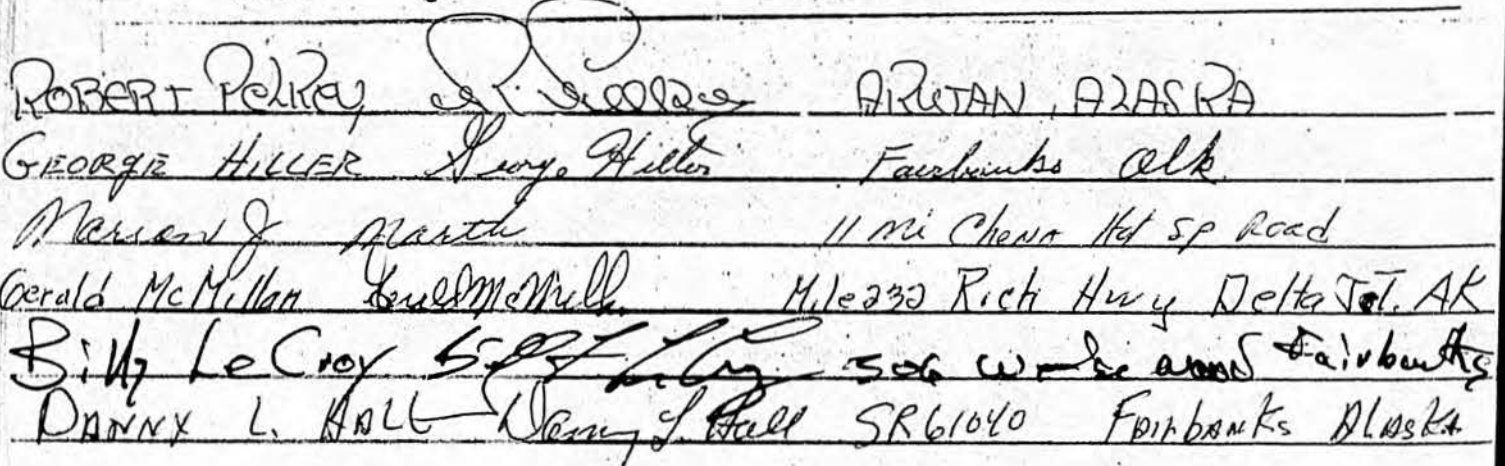 ROBERT Pelkey AKUTAN, ALASKA
GEORGE HILLER George Hiller Fairbanks Alk
Marion J Marth 11 mi Chena Hot Sp Road
Gerald McMillan Gerald McMillan Mile 232 Rich Hwy Delta Jct. AK
Billy LeCroy Billy LeCroy 506 Fairbanks
DANNY L. HALL Danny L. Hall SR61040 Fairbanks Alaska